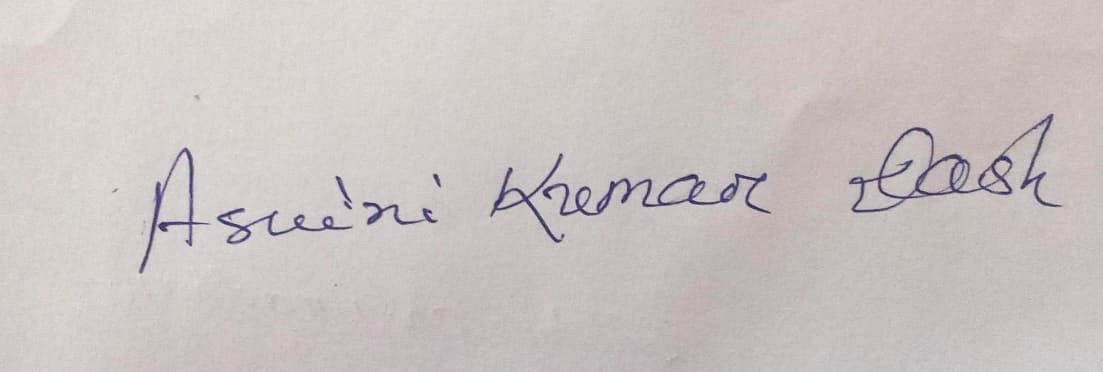 Aswini Kumar Dash